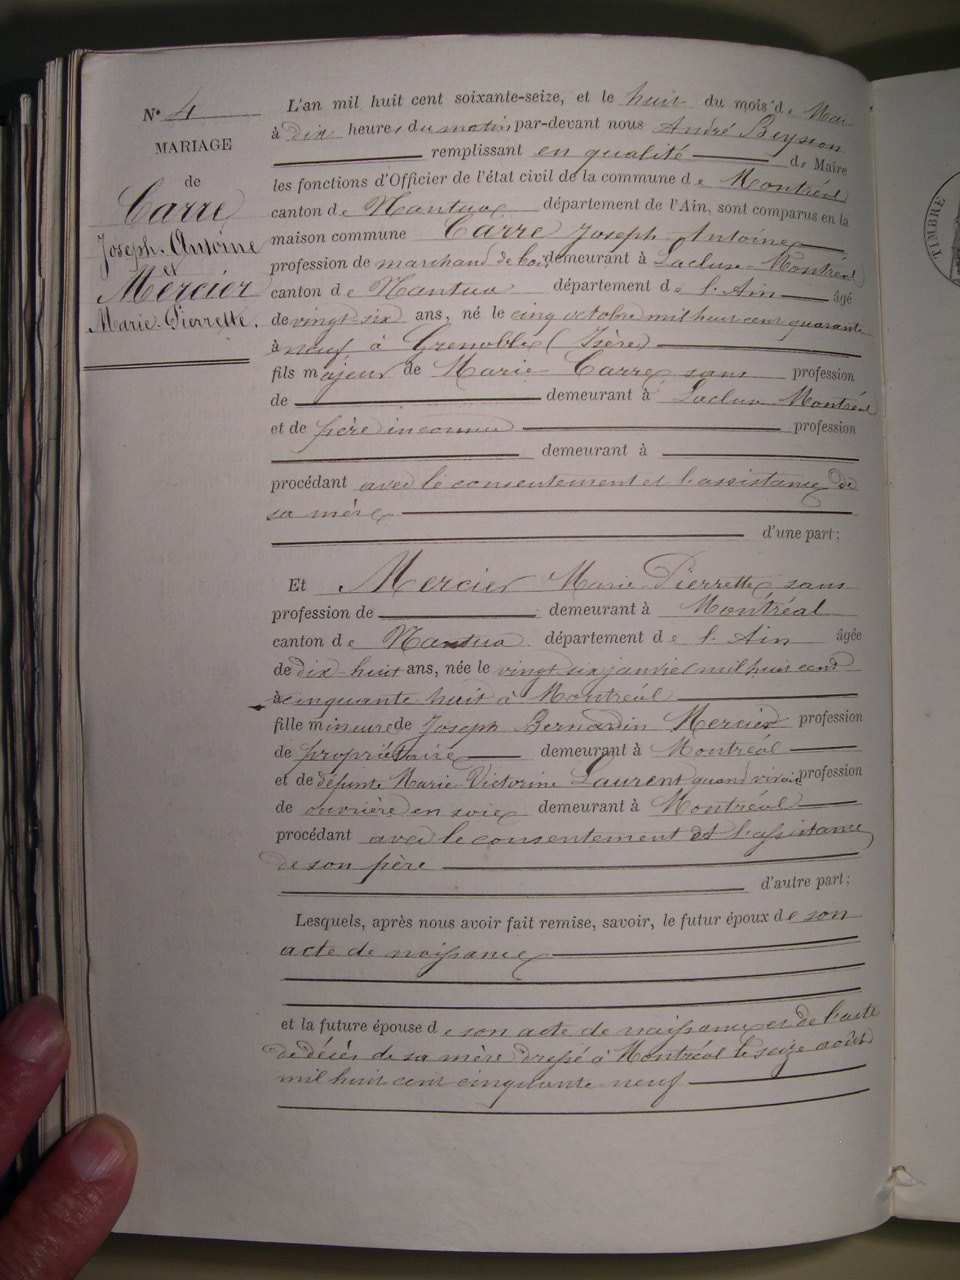 N° 4
MARIAGE
de
Carre
Joseph-Antoine
et
Mercier
Marie-Pierrette.
L'an mil huit cent soixante-seize, et le huit du mois de Mai
à dix heures du matin par-devant nous André Beysson
remplissant en qualité de Maire
les fonctions d'Officier de l'état civil de la commune de Montréal
canton de Nantua département de l'Ain, sont comparus en la
maison commune Carre Joseph Antoine
profession de marchand de bois demeurant à Lacluse-Montréal
canton de Nantua département de l'Ain âgé
de vingt six ans, né le cinq octobre mil huit cent quarante
à neuf à Grenoble (Isère)
fils majeur de Marie Carre sans profession
de demeurant à Lacluse Montréal
et de père inconnu profession
demeurant à
procédant avec le consentement et l'assistance de
sa mère
d'une part;
Et Mercier Marie Pierrette sans
profession de demeurant à Montréal
canton de Nantua département de l'Ain âgée
de dix-huit ans, née le vingt six janvier mil huit cent
à cinquante huit à Montréal
fille mineure de Joseph Bernardin Mercier profession
de propriétaire demeurant à Montréal
et de défunte Marie Victorine Laurent quand vivait profession
de ouvrière en soie demeurant à Montréal
procédant avec le consentement et l'assistance
de son père
d'autre part;
Lesquels, après nous avoir fait remise, savoir, le futur époux de son
acte de naissance
et la future épouse de son acte de naissance et de l'acte
de décès de sa mère dressé à Montréal le seize août
mil huit cent cinquante neuf
TIMBRE